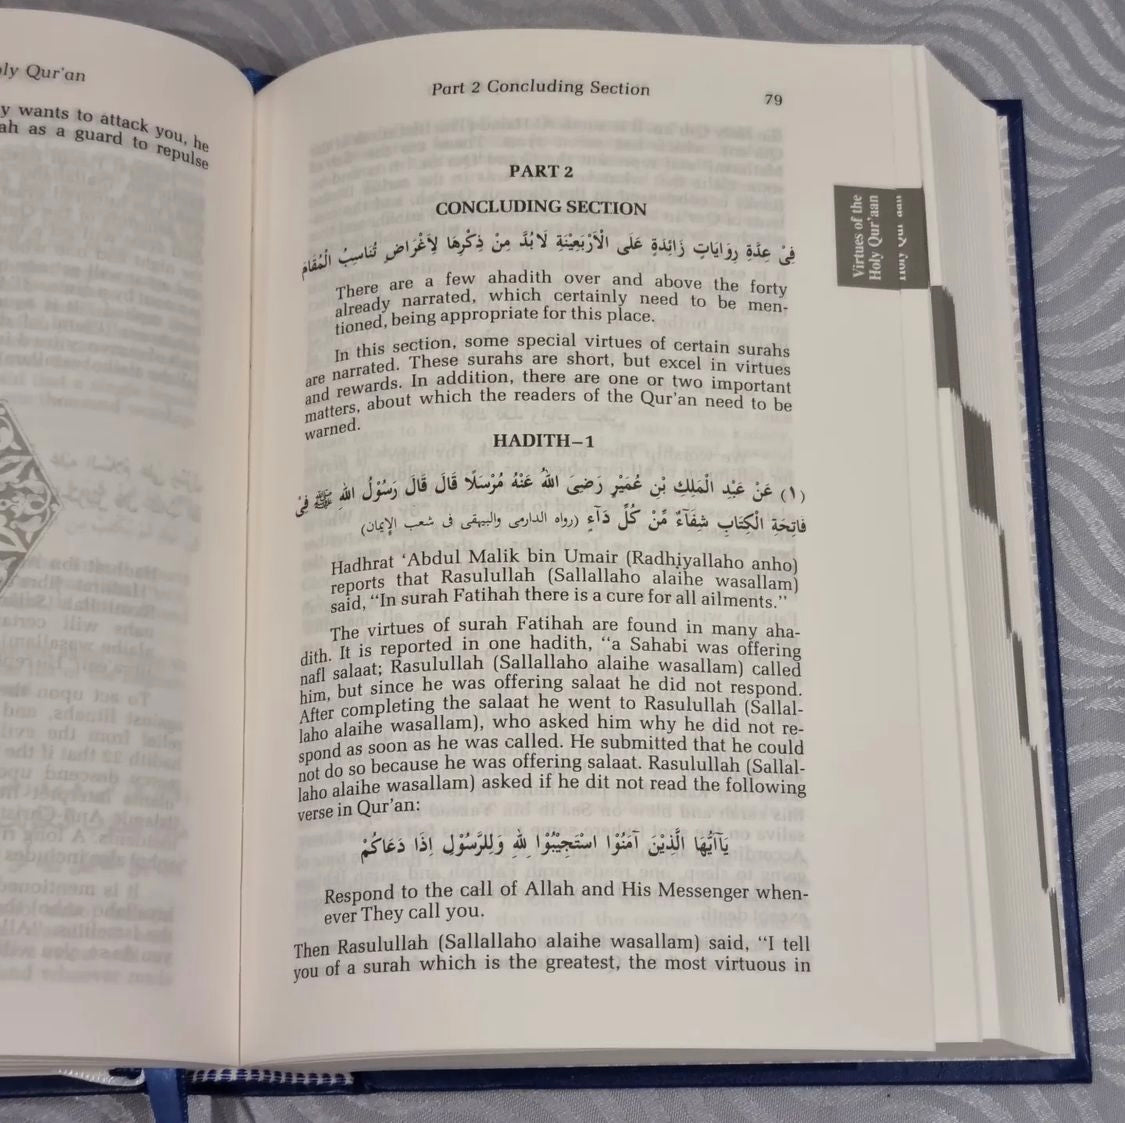 ly Qur'an
y wants to attack you, he
ah as a guard to repulse
Part 2 Concluding Section
79
PART 2
CONCLUDING SECTION
فِىْ عِدَّةِ رِوَايَاتٍ زَائِدَةٍ عَلَى الْأَرْبَعِيْنَةِ لَابُدَّ مِنْ ذِكْرِهَا لِأَغْرَاضٍ تُنَاسِبُ الْمَقَامَ
There are a few ahadith over and above the forty
already narrated, which certainly need to be men-
tioned, being appropriate for this place.
In this section, some special virtues of certain surahs
are narrated. These surahs are short, but excel in virtues
and rewards. In addition, there are one or two important
matters, about which the readers of the Qur'an need to be
warned.
HADITH–1
(١) عَنْ عَبْدِ الْمَلِكِ بْنِ عُمَيْرٍ رَضِىَ اللهُ عَنْهُ مُرْسَلًا قَالَ قَالَ رَسُوْلُ اللهِ ﷺ فِىْ
فَاتِحَةِ الْكِتَابِ شِفَآءٌ مِّنْ كُلِّ دَآءٍ (رواه الدارمى والبيهقى فى شعب الإيمان)
Hadhrat ‘Abdul Malik bin Umair (Radhiyallaho anho)
reports that Rasulullah (Sallallaho alaihe wasallam)
said, “In surah Fatihah there is a cure for all ailments.”
The virtues of surah Fatihah are found in many aha-
dith. It is reported in one hadith, “a Sahabi was offering
nafl salaat; Rasulullah (Sallallaho alaihe wasallam) called
him, but since he was offering salaat he did not respond.
After completing the salaat he went to Rasulullah (Sallal-
laho alaihe wasallam), who asked him why he did not re-
spond as soon as he was called. He submitted that he could
not do so because he was offering salaat. Rasulullah (Sallal-
laho alaihe wasallam) asked if he dit not read the following
verse in Qur'an:
يَآاَيُّهَا الَّذِيْنَ آمَنُوْا اسْتَجِيْبُوْا لِلهِ وَلِلرَّسُوْلِ اِذَا دَعَاكُمْ
Respond to the call of Allah and His Messenger when-
ever They call you.
Then Rasulullah (Sallallaho alaihe wasallam) said, “I tell
you of a surah which is the greatest, the most virtuous in
Virtues of the
Holy Qur'aan